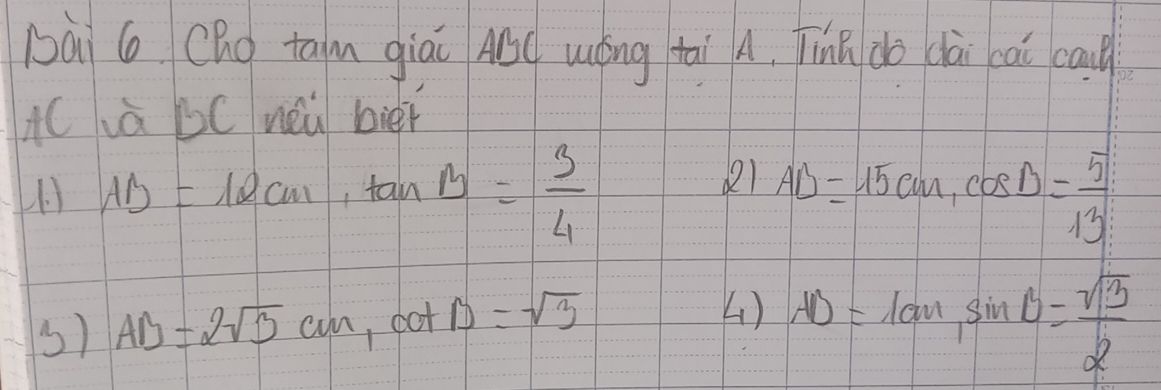 Bài 6. Cho tam giác ABC vuông tại A. Tính độ dài các cạnh
AC và BC nếu biết
1.) AB = 12cm, tan B = 3/4 2) AB = 15cm, cos B = 5/13
3) AB = 2√3 cm, cot B = √3 4) AB = 1cm, sin B = √3/2